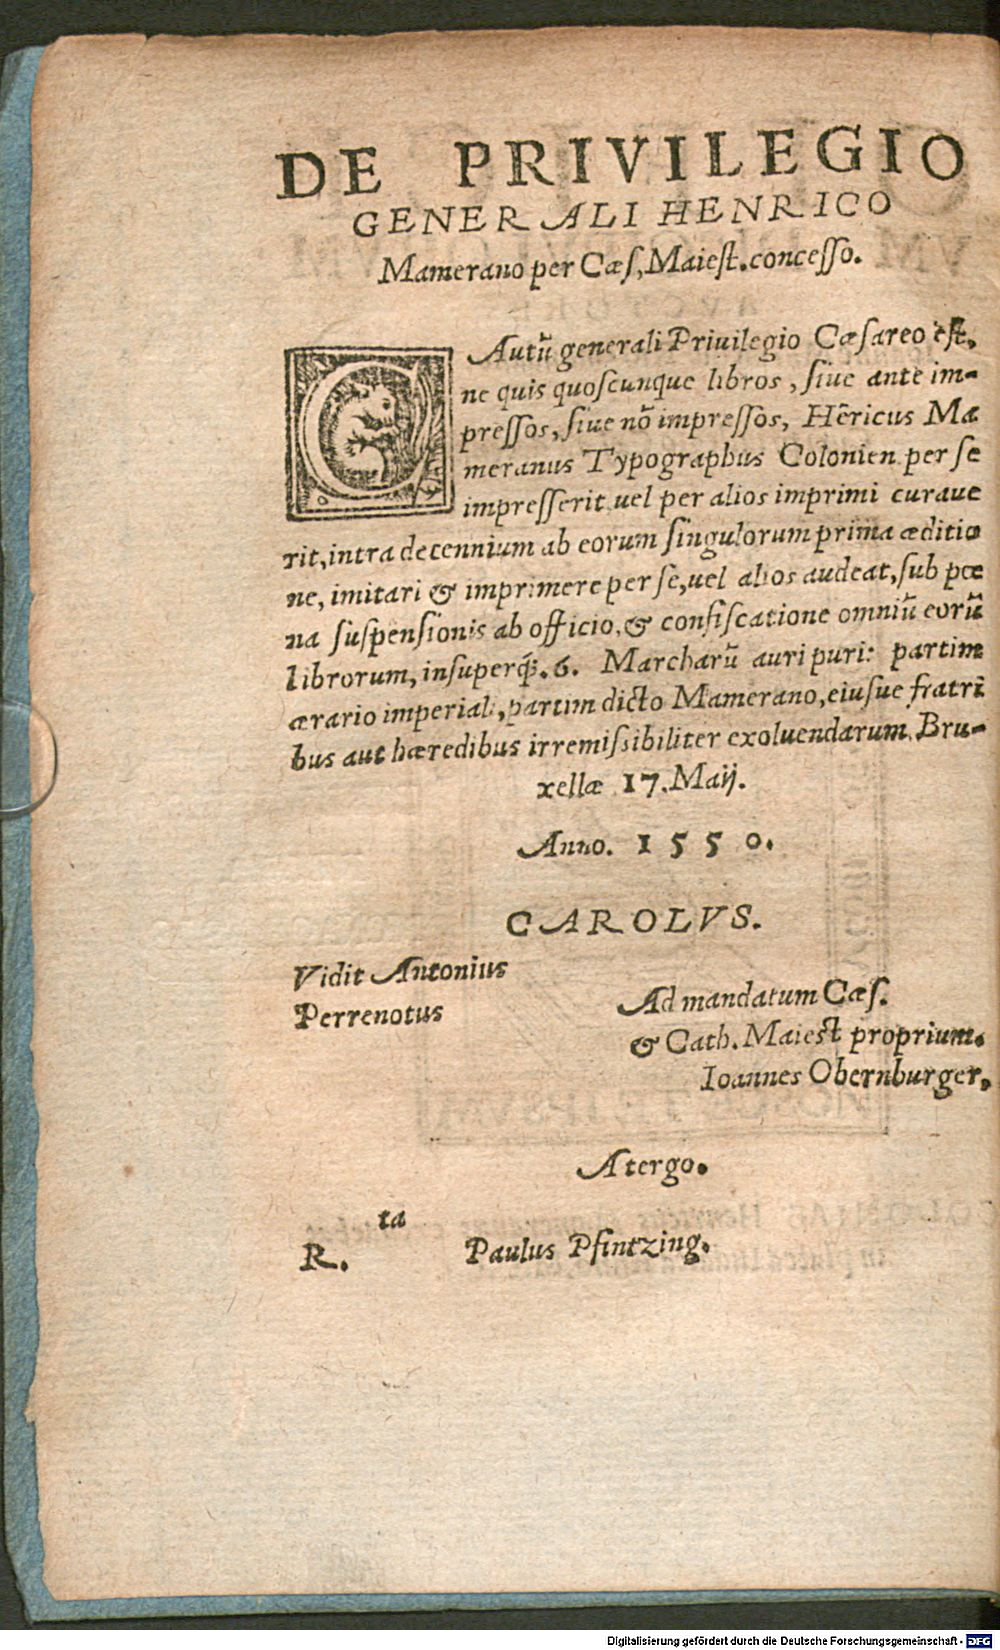 DE PRIVILEGIO
GENERALI HENRICO
Mamerano per Cæſ, Maieſt. concesſo.
CAutũ generali Priuilegio Cæſareo eſt,
ne quis quoſcunque libros, ſiue ante im-
presſos, ſiue nõ impresſos, Hẽricus Ma
meranus Typographus Colonien. per ſe
impresſerit uel per alios imprimi curaue
rit, intra decennium ab eorum ſingulorum prima æditio
ne, imitari & imprimere per ſe, uel alios audeat, ſub pœ
na ſuſpenſionis ab officio, & confiſcatione omniũ eorũ
librorum, inſuperq́;. 6. Marcharũ auri puri: partim
ærario imperiali, partim dicto Mamerano, eiuſue fratri
bus aut hæredibus irremiſsibiliter exoluendarum. Bru-
xellæ 17. Maij.
Anno. 1550.
CAROLVS.
Vidit Antonius
Perrenotus
Ad mandatum Cæſ.
& Cath. Maieſt proprium.
Ioannes Obernburger.
A tergo.
ta
R. Paulus Pfintzing.
Digitalisierung gefördert durch die Deutsche Forschungsgemeinschaft - DFG